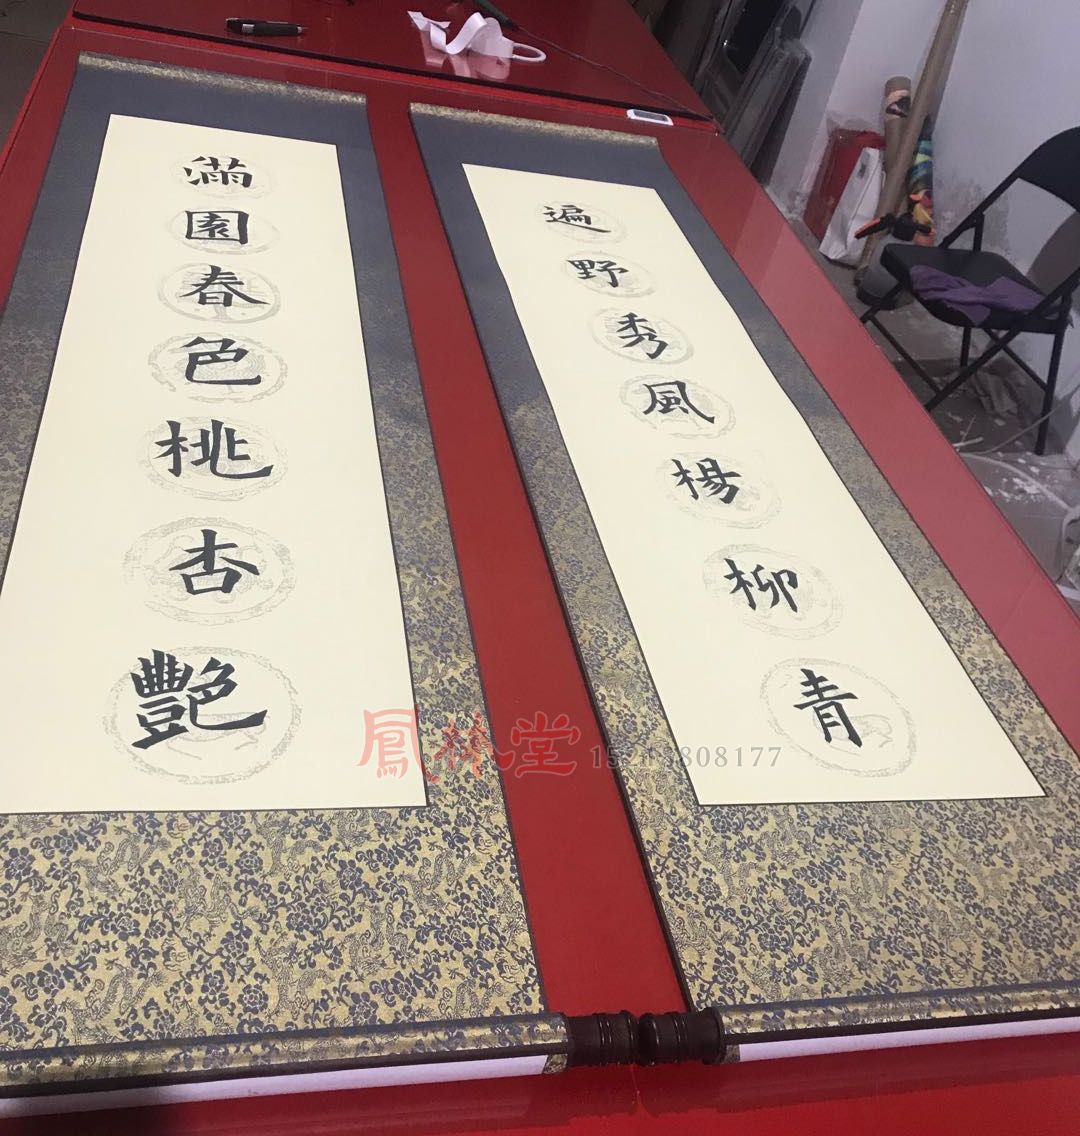 遍野秀風楊柳青
滿園春色桃杏艷
鳳林堂